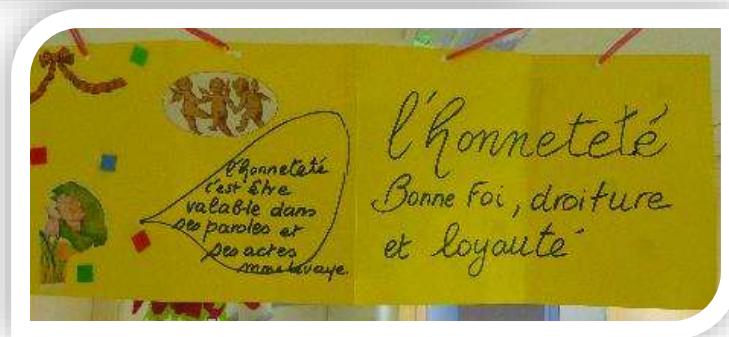 l'honneteté
c'est être
valable dans
ses paroles et
ses actes
l'honneteté
Bonne Foi, droiture
et loyauté